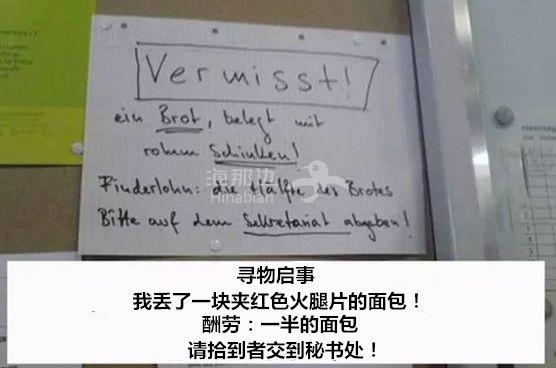 Vermisst!
ein Brot, belegt mit
rohem Schinken!
Finderlohn: die Hälfte des Brotes
Bitte auf dem Sekretariat abgeben!
海那边
Hinabian
寻物启事
我丢了一块夹红色火腿片的面包！
酬劳：一半的面包
请拾到者交到秘书处！